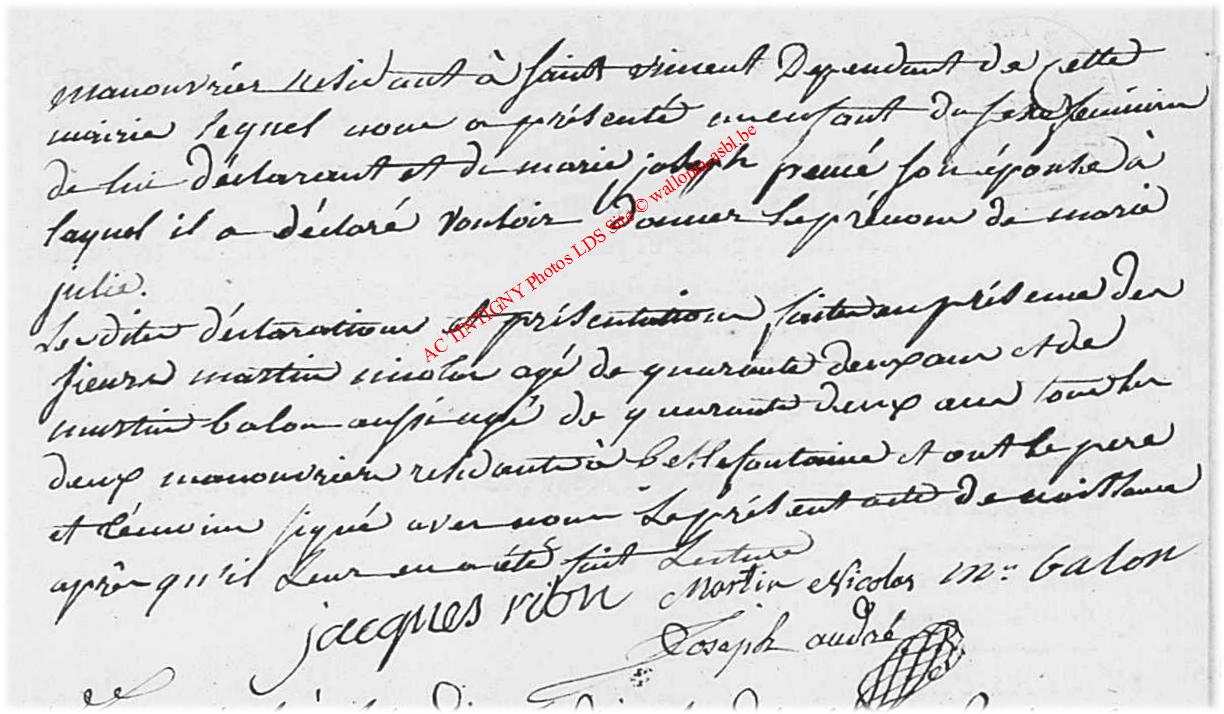 manouvrier residant à Saint vincent Dependant de Cette
mairie lequel nous a présenté un enfant du sexe feminin
de lui déclarant et de marie joseph son épouse à
laquel il a déclaré Vouloir Donner le prénom de marie
julie.
Les dites déclarations et présentation faite en présence des
sieurs martin nicolas agé de quarante deux ans et de
martin balon aussi agé de quarante deux ans tous les
deux manouvrier residants à bellefontaine et ont le pere
et témoins signé avec nous le présent acte de naissance
après qu'il leur en a été fait Lecture
jacques rion Martin Nicolas M.. balon
Joseph andré
AC TINTIGNY Photos LDS Site © wallonia-asbl.be